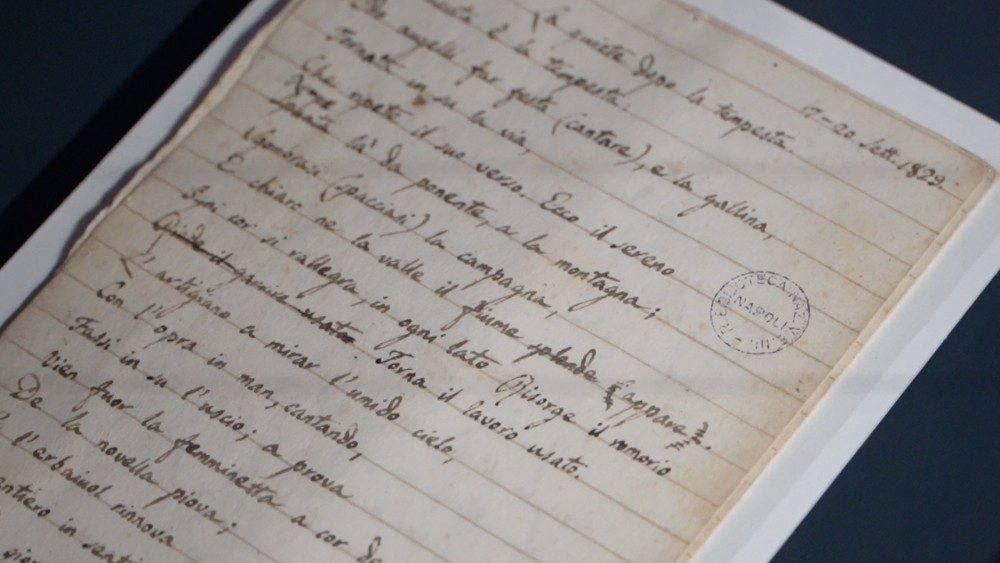 La quiete dopo la tempesta.
17-20 Sett. 1829.
è la tempesta:
augelli far festa (cantare), e la gallina,
Tornata in su la via,
Che ripete il suo verso. Ecco il sereno
là da ponente, a la montagna;
Sgombrasi (spacciasi) la campagna,
E chiaro ne la valle il fiume splende (appare).
Ogni cor si rallegra, in ogni lato Risorge il romorio
usato Torna il lavoro usato.
L'artigiano a mirar l'umido cielo,
Con l'opra in man, cantando,
Fassi in su l'uscio; a prova
Vien fuor la femminetta a cor de
De la novella piova;
E l'erbaiuol rinnova
in senti
R. BIBLIOTECA NAZ. V. E. III.
NAPOLI